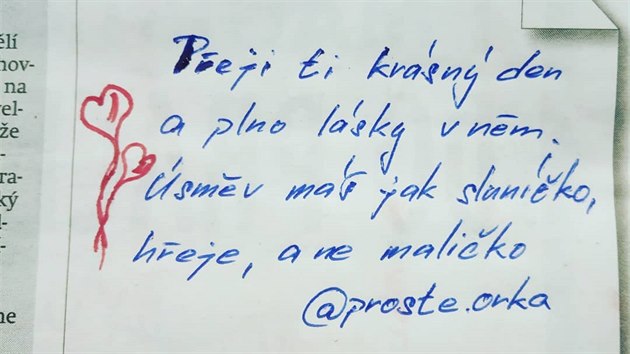 ělí
nov-
na
vel-
že
-
ra-
ký
d-
-
ne
Přeji ti krásný den
a plno lásky v něm.
Úsměv máš jak sluníčko,
hřeje, a ne maličko
@proste.orka